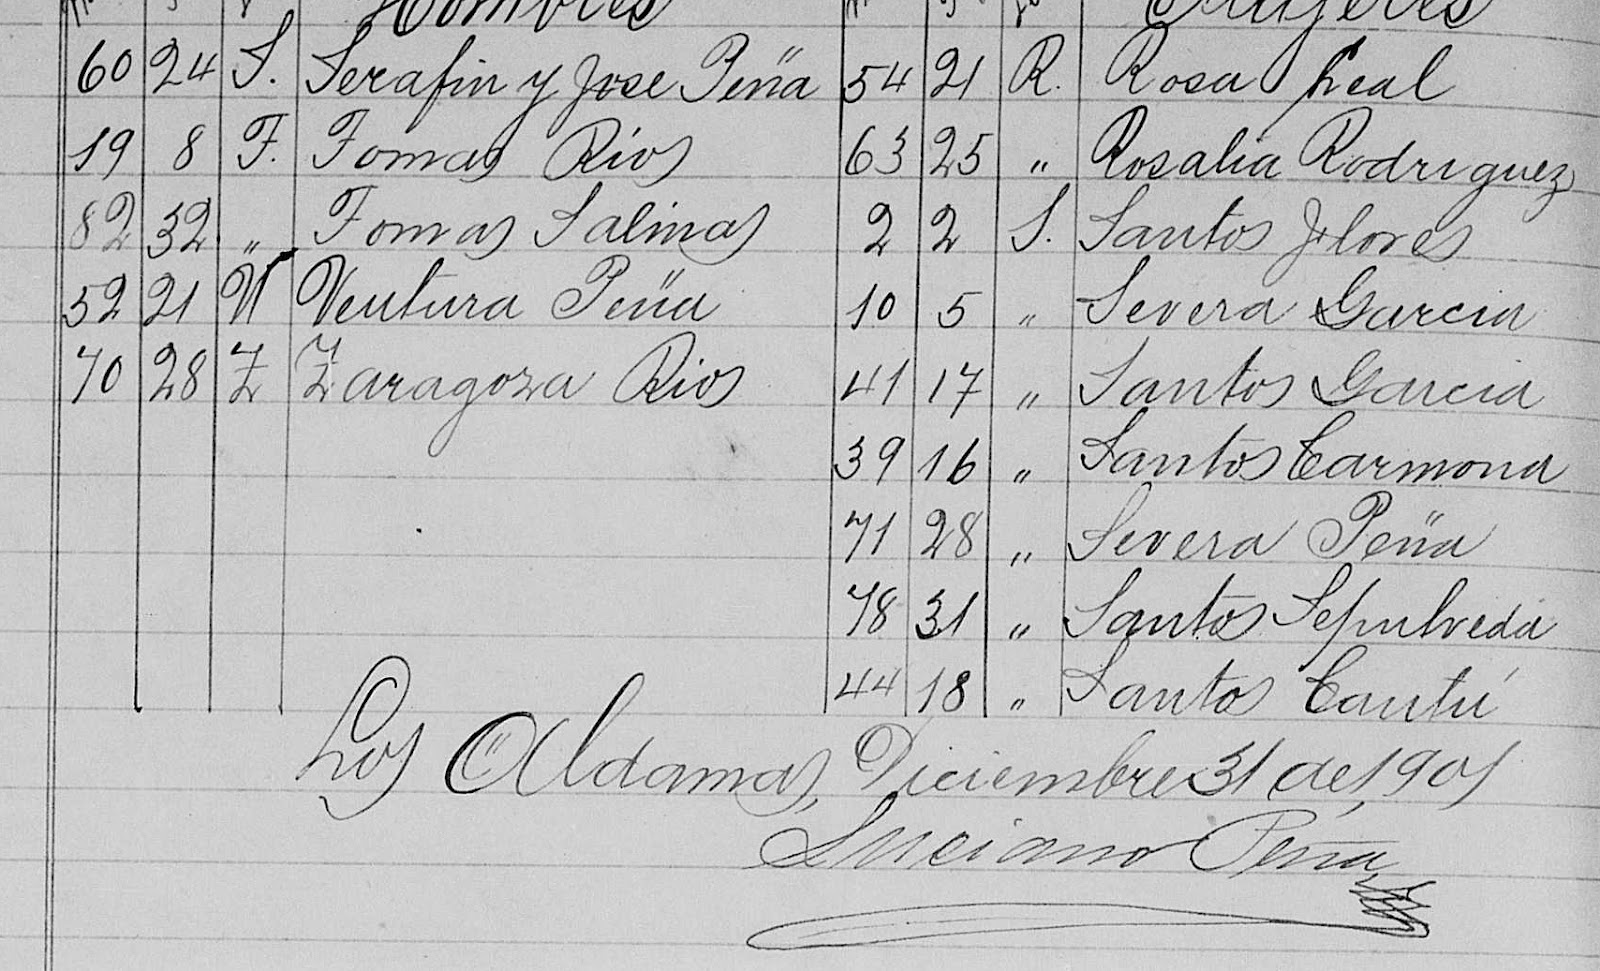 Hombres Mujeres
60 24 S. Serafin y Jose Peña 54 21 R. Rosa Leal
19 8 T. Tomas Rios 63 25 " Rosalia Rodriguez
82 32 " Tomas Salinas 2 2 S. Santos Flores
52 21 V Ventura Peña 10 5 " Severa Garcia
70 28 Z Zaragoza Rios 41 17 " Santos Garcia
39 16 " Santos Carmona
71 28 " Severa Peña
78 31 " Santos Sepulveda
44 18 " Santos Cantú
Los Aldamas, Diciembre 31 de 1901
Luciano Peña